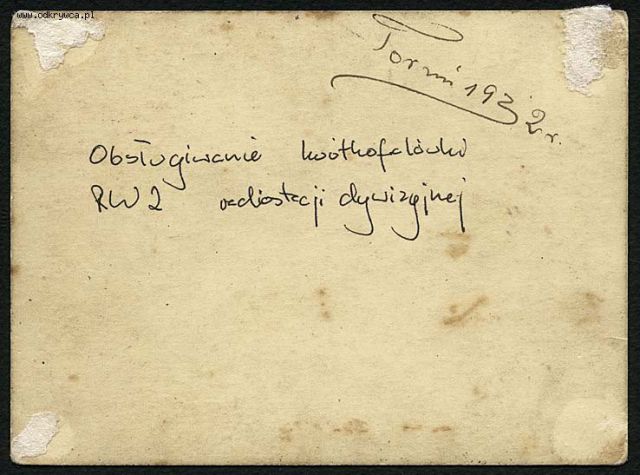 www.odkrywca.pl
Toruń 1932 r.
Obsługiwanie krótkofalówki
RW2 radiostacji dywizyjnej